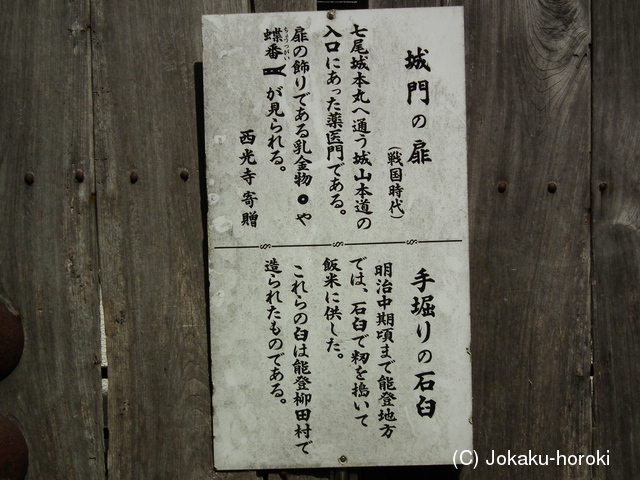 城門の扉
（戦国時代）
七尾城本丸へ通う城山本道の
入口にあった薬医門である。
扉の飾りである乳金物や
蝶番が見られる。
ちょうつがい
西光寺寄贈
手堀りの石臼
明治中期頃まで能登地方
では、石臼で籾を搗いて
飯米に供した。
これらの臼は能登柳田村で
造られたものである。
(C) Jokaku-horoki